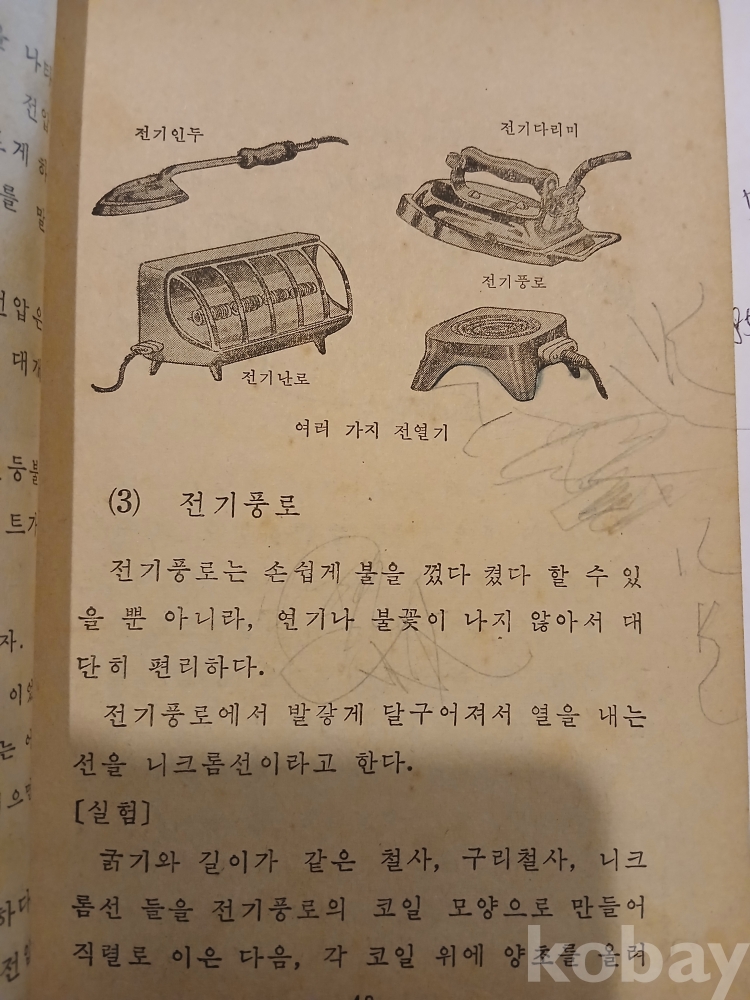 전기인두
전기다리미
전기풍로
전기난로
여러 가지 전열기
(3) 전기풍로
전기풍로는 손쉽게 불을 껐다 켰다 할 수 있
을 뿐 아니라, 연기나 불꽃이 나지 않아서 대
단히 편리하다.
전기풍로에서 발갛게 달구어져서 열을 내는
선을 니크롬선이라고 한다.
[실험]
굵기와 길이가 같은 철사, 구리철사, 니크
롬선 들을 전기풍로의 코일 모양으로 만들어
직렬로 이은 다음, 각 코일 위에 양초를 올려
kobay